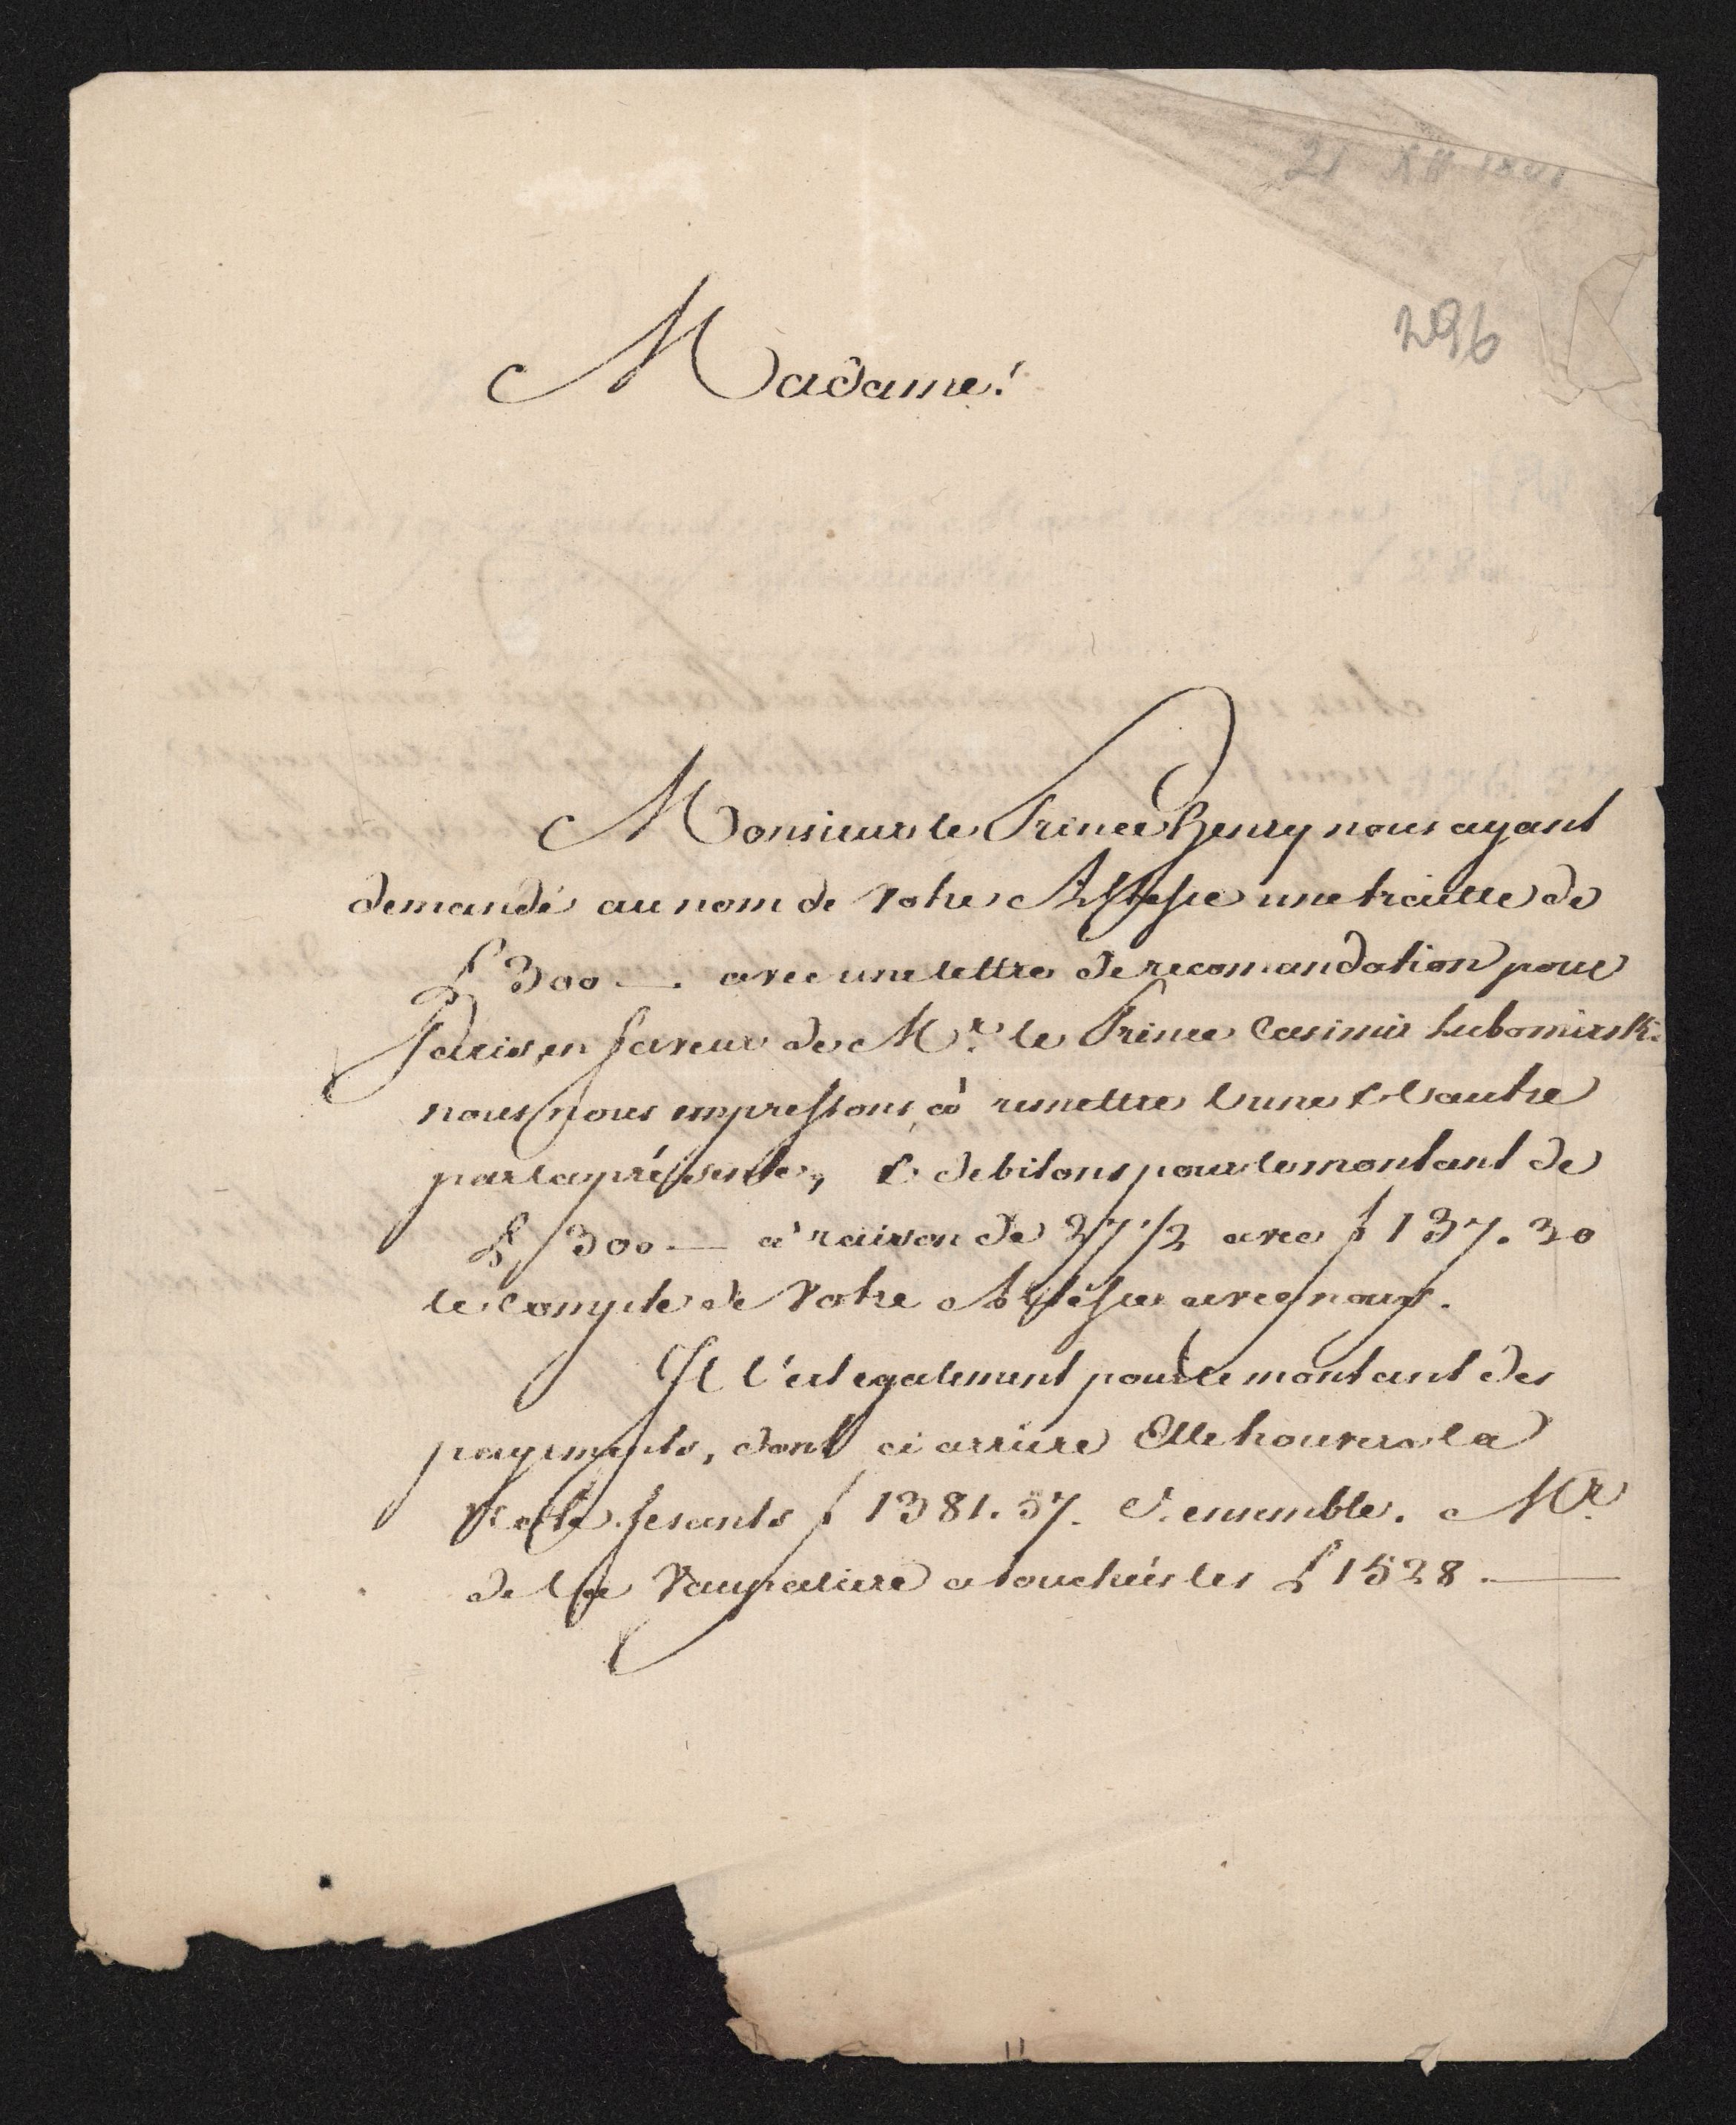 21 XII 1801
296
Madame!
Monsieur le Prince Henry nous ayant
demandé au nom de Votre Altesse une traitte de
£ 300 —. avec une lettre de recomandation pour
Paris, en faveur de Mr. le Prince Casimir Lubomirski.
nous nous empressons, à remettre l'une & l'autre
par la présente, & debitons pour le montant de
£ 300.— à raison de 27 1/2 avec f 137.30
le Compte de Votre Altesse avec nous.
Il l'est egalement pour le montant des
payements, dont ci arriere Elle trouvera la
Note fesants f 1381.57. Ensemble. Mr.
de la Vaupaliere a touchés les £ 1528.—